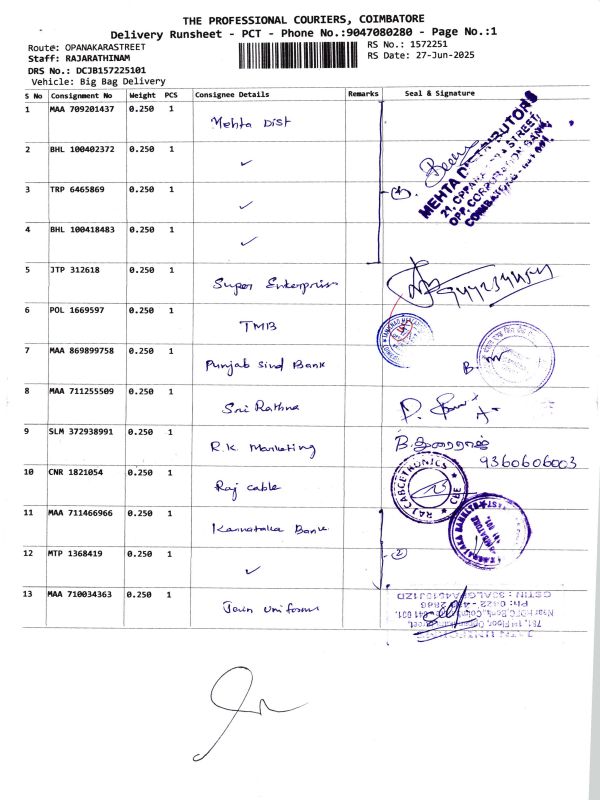 THE PROFESSIONAL COURIERS, COIMBATORE
Delivery Runsheet - PCT - Phone No.:9047080280 - Page No.:1
Route: OPANAKARASTREET
RS No.: 1572251
Staff: RAJARATHINAM
RS Date: 27-Jun-2025
DRS No.: DCJB157225101
Vehicle: Big Bag Delivery
S No Consignment No Weight PCS Consignee Details Remarks Seal & Signature
1 MAA 709201437 0.250 1 Mehta Dist
2 BHL 100402372 0.250 1 ✓
3 TRP 6465869 0.250 1 ✓
4 BHL 100418483 0.250 1 ✓
MEHTA DISTRIBUTORS
21, OPPANAKARA STREET,
OPP. CORPORATION BANK,
COIMBATORE
5 JTP 312618 0.250 1 Super Enterprises
6 POL 1669597 0.250 1 TMB
7 MAA 869899758 0.250 1 Punjab Sind Bank
8 MAA 711255509 0.250 1 Sri Rathna
9 SLM 372938991 0.250 1 R.K. Marketing
9360606003
10 CNR 1821054 0.250 1 Raj cable
RAJ CABCETRONICS
CBE
11 MAA 711466966 0.250 1 Karnataka Bank
KARNATAKA BANK LTD
12 MTP 1368419 0.250 1 ✓ 2
13 MAA 710034363 0.250 1 Jain Uniforms